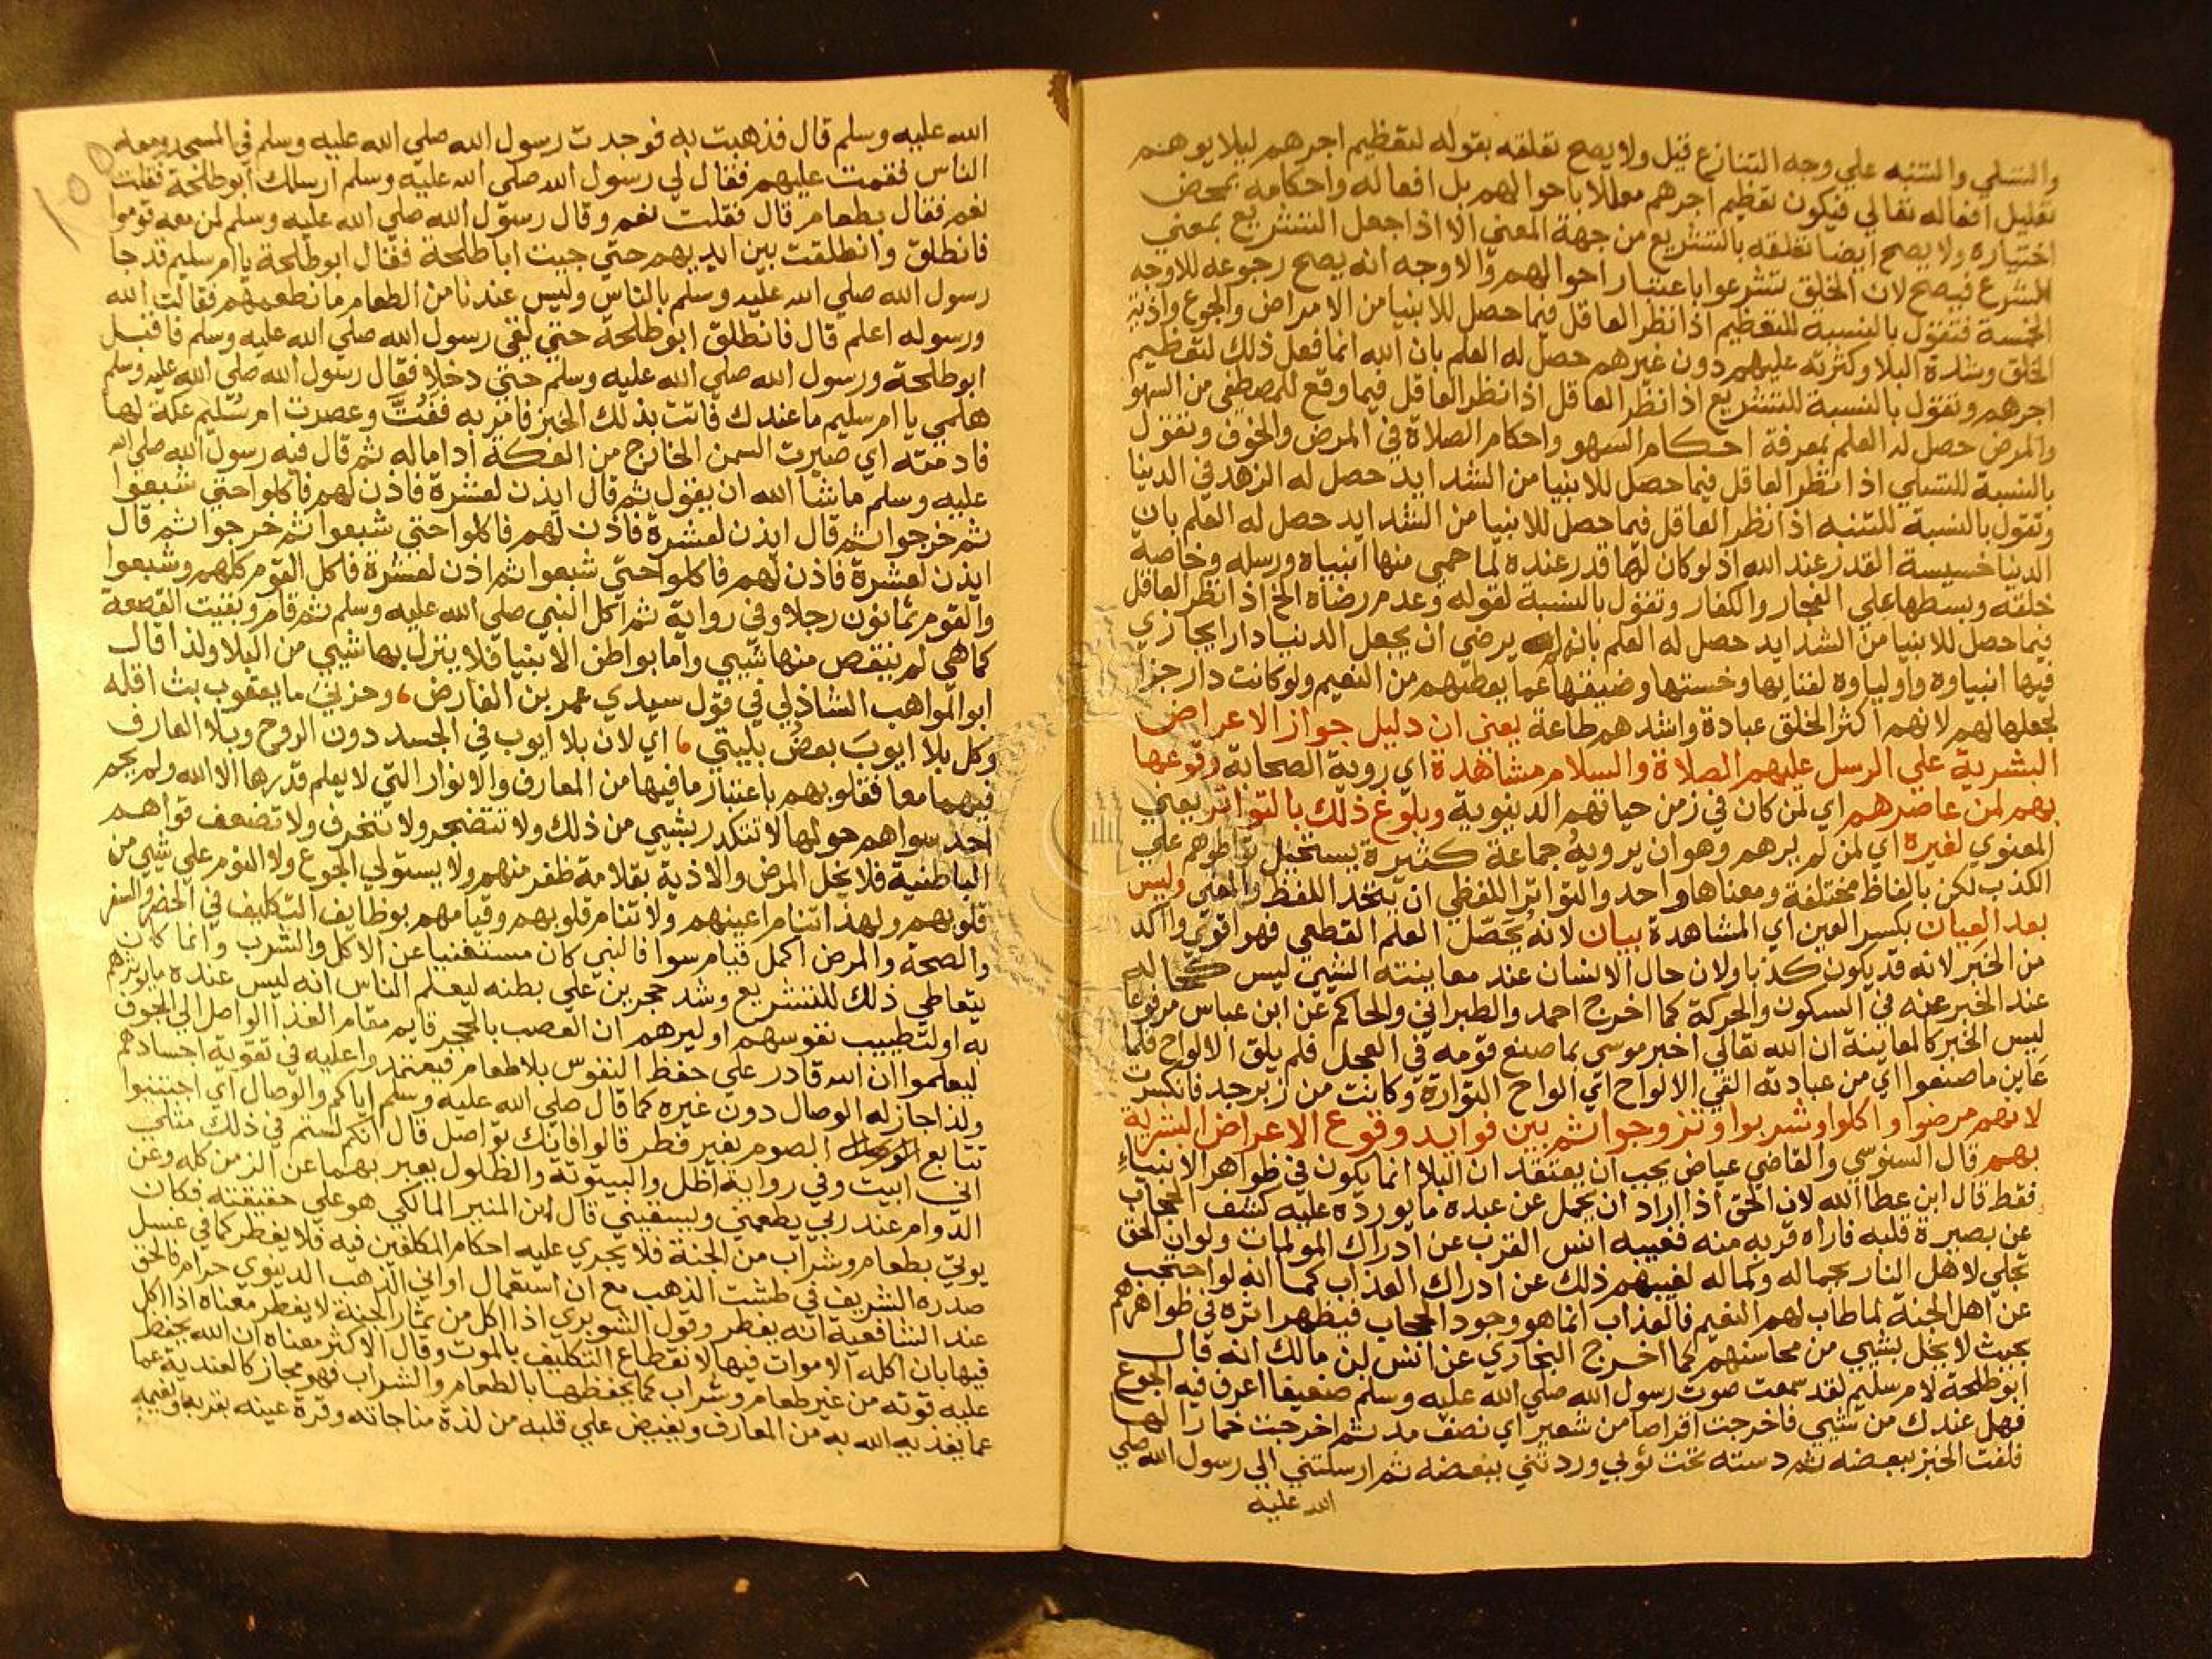 والتسلي والتنبه علي وجه التنازع قيل ولا يصح تعلقه بقوله لتعظيم اجرهم ليلا يوهم
تعليل افعاله تعالي فيكون تعظيم اجرهم معللا باحوالهم بل افعاله واحكامه بمحض
اختياره ولا يصح ايضا تعلقه بالتشريع من جهة المعني الا اذا جعل التشريع بمعني
الشرع فيصح لان الخلق تشرعوا باعتبار احوالهم والاوجه انه يصح رجوعه للاوجه
الخمسة فتقول بالنسبة للتعظيم اذا نظر العاقل فيما حصل للانبيا من الامراض والجوع واذية
الخلق وشدة البلا وكثرته عليهم دون غيرهم حصل له العلم بان الله انما فعل ذلك لتعظيم
اجرهم وتقول بالنسبة للتشريع اذا نظر العاقل اذا نظر العاقل فيما وقع للمصطفي من السهو
والمرض حصل له العلم بمعرفة احكام السهو واحكام الصلاة في المرض والخوف وتقول
بالنسبة للتسلي اذا نظر العاقل فيما حصل للانبيا من الشدايد حصل له الزهد في الدنيا
وتقول بالنسبة للتنبه اذا نظر العاقل فيما حصل للانبيا من الشدايد حصل له العلم بان
الدنيا خسيسة القدر عند الله اذ لو كان لها قدر عنده لما حمي منها انبياه ورسله وخاصة
خلقه وبسطها علي الفجار والكفار وتقول بالنسبة لقوله وعدم رضاه الخ اذا نظر العاقل
فيما حصل للانبيا من الشدايد حصل له العلم بانه يرضي ان يجعل الدنيا دارا يجازي
فيها انبياوه واولياوه لفنايها وخستها وضيقها عما يعطيهم من النعيم ولو كانت دار جزا
لجعلها لهم لانهم اكثر الخلق عبادة واشدهم طاعة يعني ان دليل جواز الاعراض
البشرية علي الرسل عليهم الصلاة والسلام مشاهدة اي روية الصحابة وقوعها
بهم لمن عاصرهم اي لمن كان في زمن حياتهم الدنيوية وبلوغ ذلك بالتواتر يعني
المعنوي لغيره اي لمن لم يرهم وهو ان يرويه جماعة كثيرة يستحيل تواطوهم علي
الكذب لكن بالفاظ مختلفة ومعناها واحد والتواتر اللفظي ان يتحد اللفظ والمعني وليس
بعد العيان بكسر العين اي المشاهدة بيان لانه يحصّل العلم القطعي فهو اقوي واكد
من الخبر لانه قد يكون كذبا ولان حال الانسان عند معاينته الشيي ليس كحاله
عند الخبر عنه في السكون والحركة كما اخرج احمد والطبراني والحاكم عن ابن عباس مرفوعا
ليس الخبر كالمعاينة ان الله تعالي اخبر موسي بما صنع قومه في العجل فلم يلق الالواح فلما
عاين ما صنعوا اي من عبادته القي الالواح اي الواح التوارة وكانت من زبرجد فانكسرت
لانهم مرضوا واكلوا وشربوا وتزوجوا ثم بين فوايد وقوع الاعراض البشرية
بهم قال السنوسي والقاضي عياض يجب ان يعتقد ان البلا انما يكون في ظواهر الانبياء
فقط قال ابن عطا الله لان الحق اذا اراد ان يحمل عن عبده ما يورده عليه كشف الحجاب
عن بصيرة قلبه فاراه قربه منه فغيبه انس القرب عن ادراك المولمات ولو ان الحق
تجلي لاهل النار بجماله وكماله لغيبهم ذلك عن ادراك العذاب كما انه لو احتجب
عن اهل الجنة لما طاب لهم النعيم فالعذاب انما هو وجود الحجاب فيظهر اثره في ظواهرهم
بحيث لا يخل بشيي من محاسنهم كما اخرج البخاري عن انس بن مالك انه قال
ابو طلحة لام سليم لقد سمعت صوت رسول الله صلي الله عليه وسلم ضعيفا اعرف فيه الجوع
فهل عندك من شيي فاخرجت اقراصا من شعير اي نصف مد ثم اخرجت خمارا لها
فلفت الخبز ببعضه ثم دسته تحت ثوبي وردتني ببعضه ثم ارسلتني الي رسول الله صلي
الله عليه
الله عليه وسلم قال فذهبت به فوجدت رسول الله صلي الله عليه وسلم في المسجد ومعه
الناس فقمت عليهم فقال لي رسول الله صلي الله عليه وسلم ارسلك ابو طلحة فقلت
نعم فقال بطعام قال فقلت نعم وقال رسول الله صلي الله عليه وسلم لمن معه قوموا
فانطلق وانطلقت بين ايديهم حتي جيت ابا طلحة فقال ابو طلحة يا ام سليم قد جا
رسول الله صلي الله عليه وسلم بالناس وليس عندنا من الطعام ما نطعمهم فقالت الله
ورسوله اعلم قال فانطلق ابو طلحة حتي لقي رسول الله صلي الله عليه وسلم فاقبل
ابو طلحة ورسول الله صلي الله عليه وسلم حتي دخلا فقال رسول الله صلي الله عليه وسلم
هلمي يا ام سليم ما عندك فاتت بذلك الخبز فامر به ففُتّ وعصرت ام سُليم عكة لها
فادمته اي صيرت السمن الخارج من العكة اداما له ثم قال فيه رسول الله صلي الله
عليه وسلم ما شا الله ان يقول ثم قال ايذن لعشرة فاذن لهم فاكلوا حتي شبعوا
ثم خرجوا ثم قال ايذن لعشرة فاذن لهم فاكلوا حتي شبعوا ثم خرجوا ثم قال
ايذن لعشرة فاذن لهم فاكلوا حتي شبعوا ثم اذن لعشرة فاكل القوم كلهم وشبعوا
والقوم ثمانون رجلا وفي رواية ثم اكل النبي صلي الله عليه وسلم ثم قام وبقيت القصعة
كما هي لم ينقص منها شيي واما بواطن الانبيا فلا ينزل بها شيي من البلا ولذا قال
ابو المواهب الشاذلي في قول سيدي عمر بن الفارض وحزني ما يعقوب بث اقله
وكل بلا ايوب بعض بليتي اي لان بلا ايوب في الجسد دون الروح وبلا العارف
فيهما معا فقلوبهم باعتبار ما فيها من المعارف والانوار التي لا يعلم قدرها الا الله ولم يحم
احد سواهم حولها لا تتكدر بشيي من ذلك ولا تتضجر ولا تنحرف ولا تضعف قواهم
الباطنية فلا يخل المرض والاذية بقلامة ظفر منهم ولا يستولي الجوع ولا النوم علي شيي من
قلوبهم ولهذا تنام اعينهم ولا تنام قلوبهم وقيامهم بوظايف التكليف في الحضر والسفر
والصحة والمرض اكمل قيام سوا فالنبي كان مستغنيا عن الاكل والشرب وانما كان
يتعاطي ذلك للتشريع وشد حجرين علي بطنه ليعلم الناس انه ليس عنده ما يوثرهم
به او لتطييب نفوسهم او ليرهم ان العصب بالحجر قايم مقام الغذا الواصل الي الجوف
ليعلموا ان الله قادر علي حفظ النفوس بلا طعام فيعتمدوا عليه في تقوية اجسادهم
ولذا جاز له الوصال دون غيره كما قال صلي الله عليه وسلم اياكم والوصال اي اجتنبوا
تتابع الصوم بغير فطر قالوا فانك تواصل قال انكم لستم في ذلك مثلي
اني ابيت وفي رواية اظل والبيتوتة والظلول يعبر بهما عن الزمن كله وعن
الدوام عند ربي يطعمني ويسقيني قال ابن المنير المالكي هو علي حقيقته فكان
يوتي بطعام وشراب من الجنة فلا يجري عليه احكام المكلفين فيه فلا يفطر كما في غسل
صدره الشريف في طشت الذهب مع ان استعمال اواني الذهب الدنيوي حرام فالحق
عند الشافعية انه يفطر وقول الشوبري اذا اكل من ثمار الجنة لا يفطر معناه اذا اكل
فيها بان اكله الاموات فيها لانقطاع التكليف بالموت وقال الاكثر معناه ان الله يحفظ
عليه قوته من غير طعام وشراب كما يحفظها بالطعام والشراب فهو مجاز كالعندية عما
عما يغذيه الله به من المعارف ويفيض علي قلبه من لذة مناجاته وقرة عينه بقربه ونعيمه